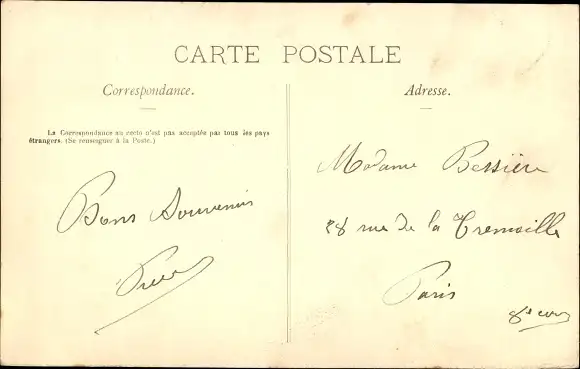 CARTE POSTALE
Correspondance.
La Correspondance au recto n'est pas acceptée par tous les pays
étrangers. (Se renseigner à la Poste.)
Bons Souvenirs
Adresse.
Madame Bessière
28 rue de la Tremoille
Paris
8e